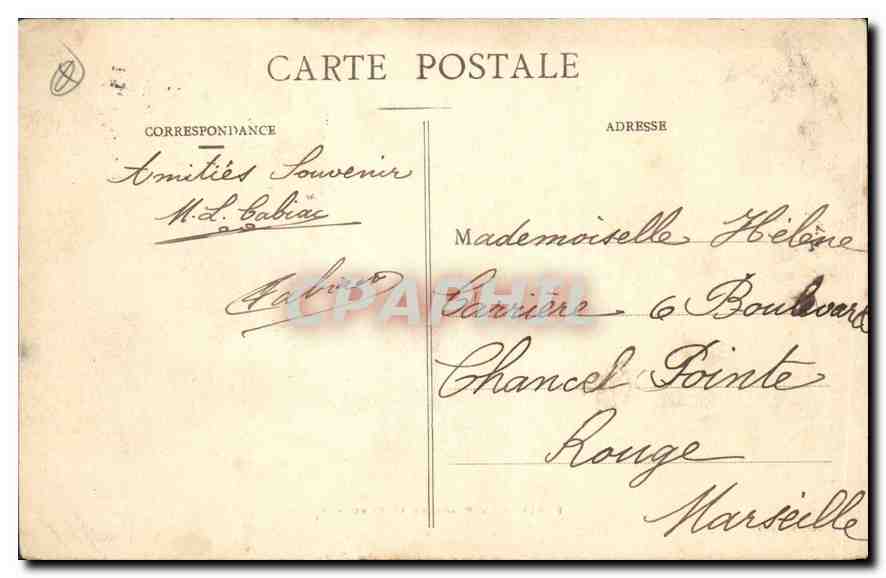 CARTE POSTALE
CORRESPONDANCE
Amitiés Souvenir
M. L. Cabiac
ADRESSE
Mademoiselle Hélène
Carrière 6 Boulevard
Chancel Pointe
Rouge
Marseille
CPAPHIL